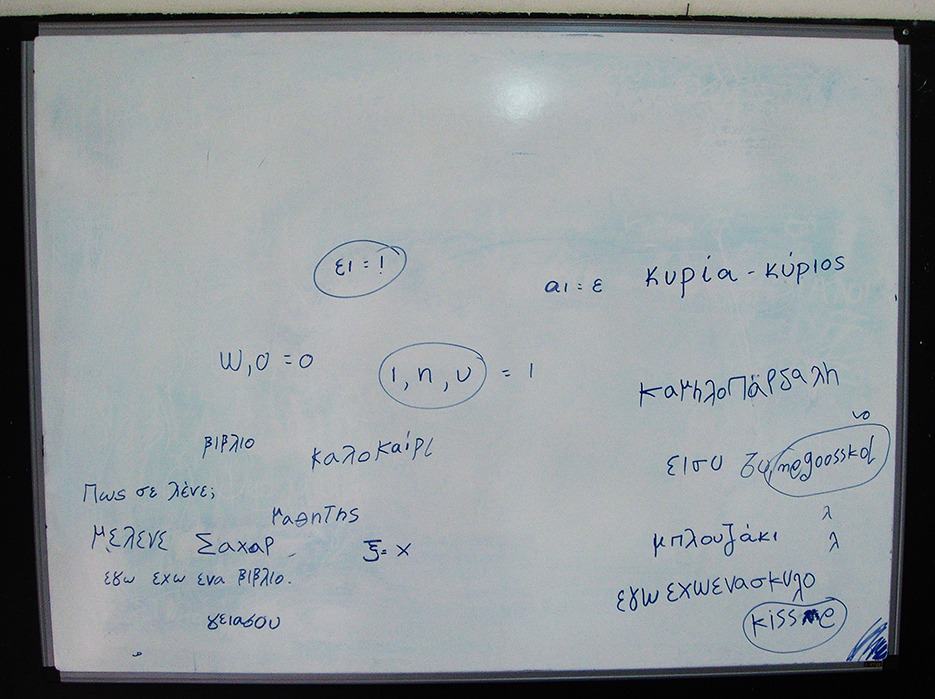 ει = ι
αι = ε κυρία - κύριος
ω, ο = ο
ι, η, υ = ι
καμηλοπάρδαλη
βιβλιο
καλοκαίρι
νο
εισυ
Πως σε λένε;
μαθητης
με λενε Σαχαρ
ξ = χ
μπλουζάκι
λ
λ
εγω εχω ενα βιβλιο.
εγω εχω ενα σκυλο
γειασου
kiss me